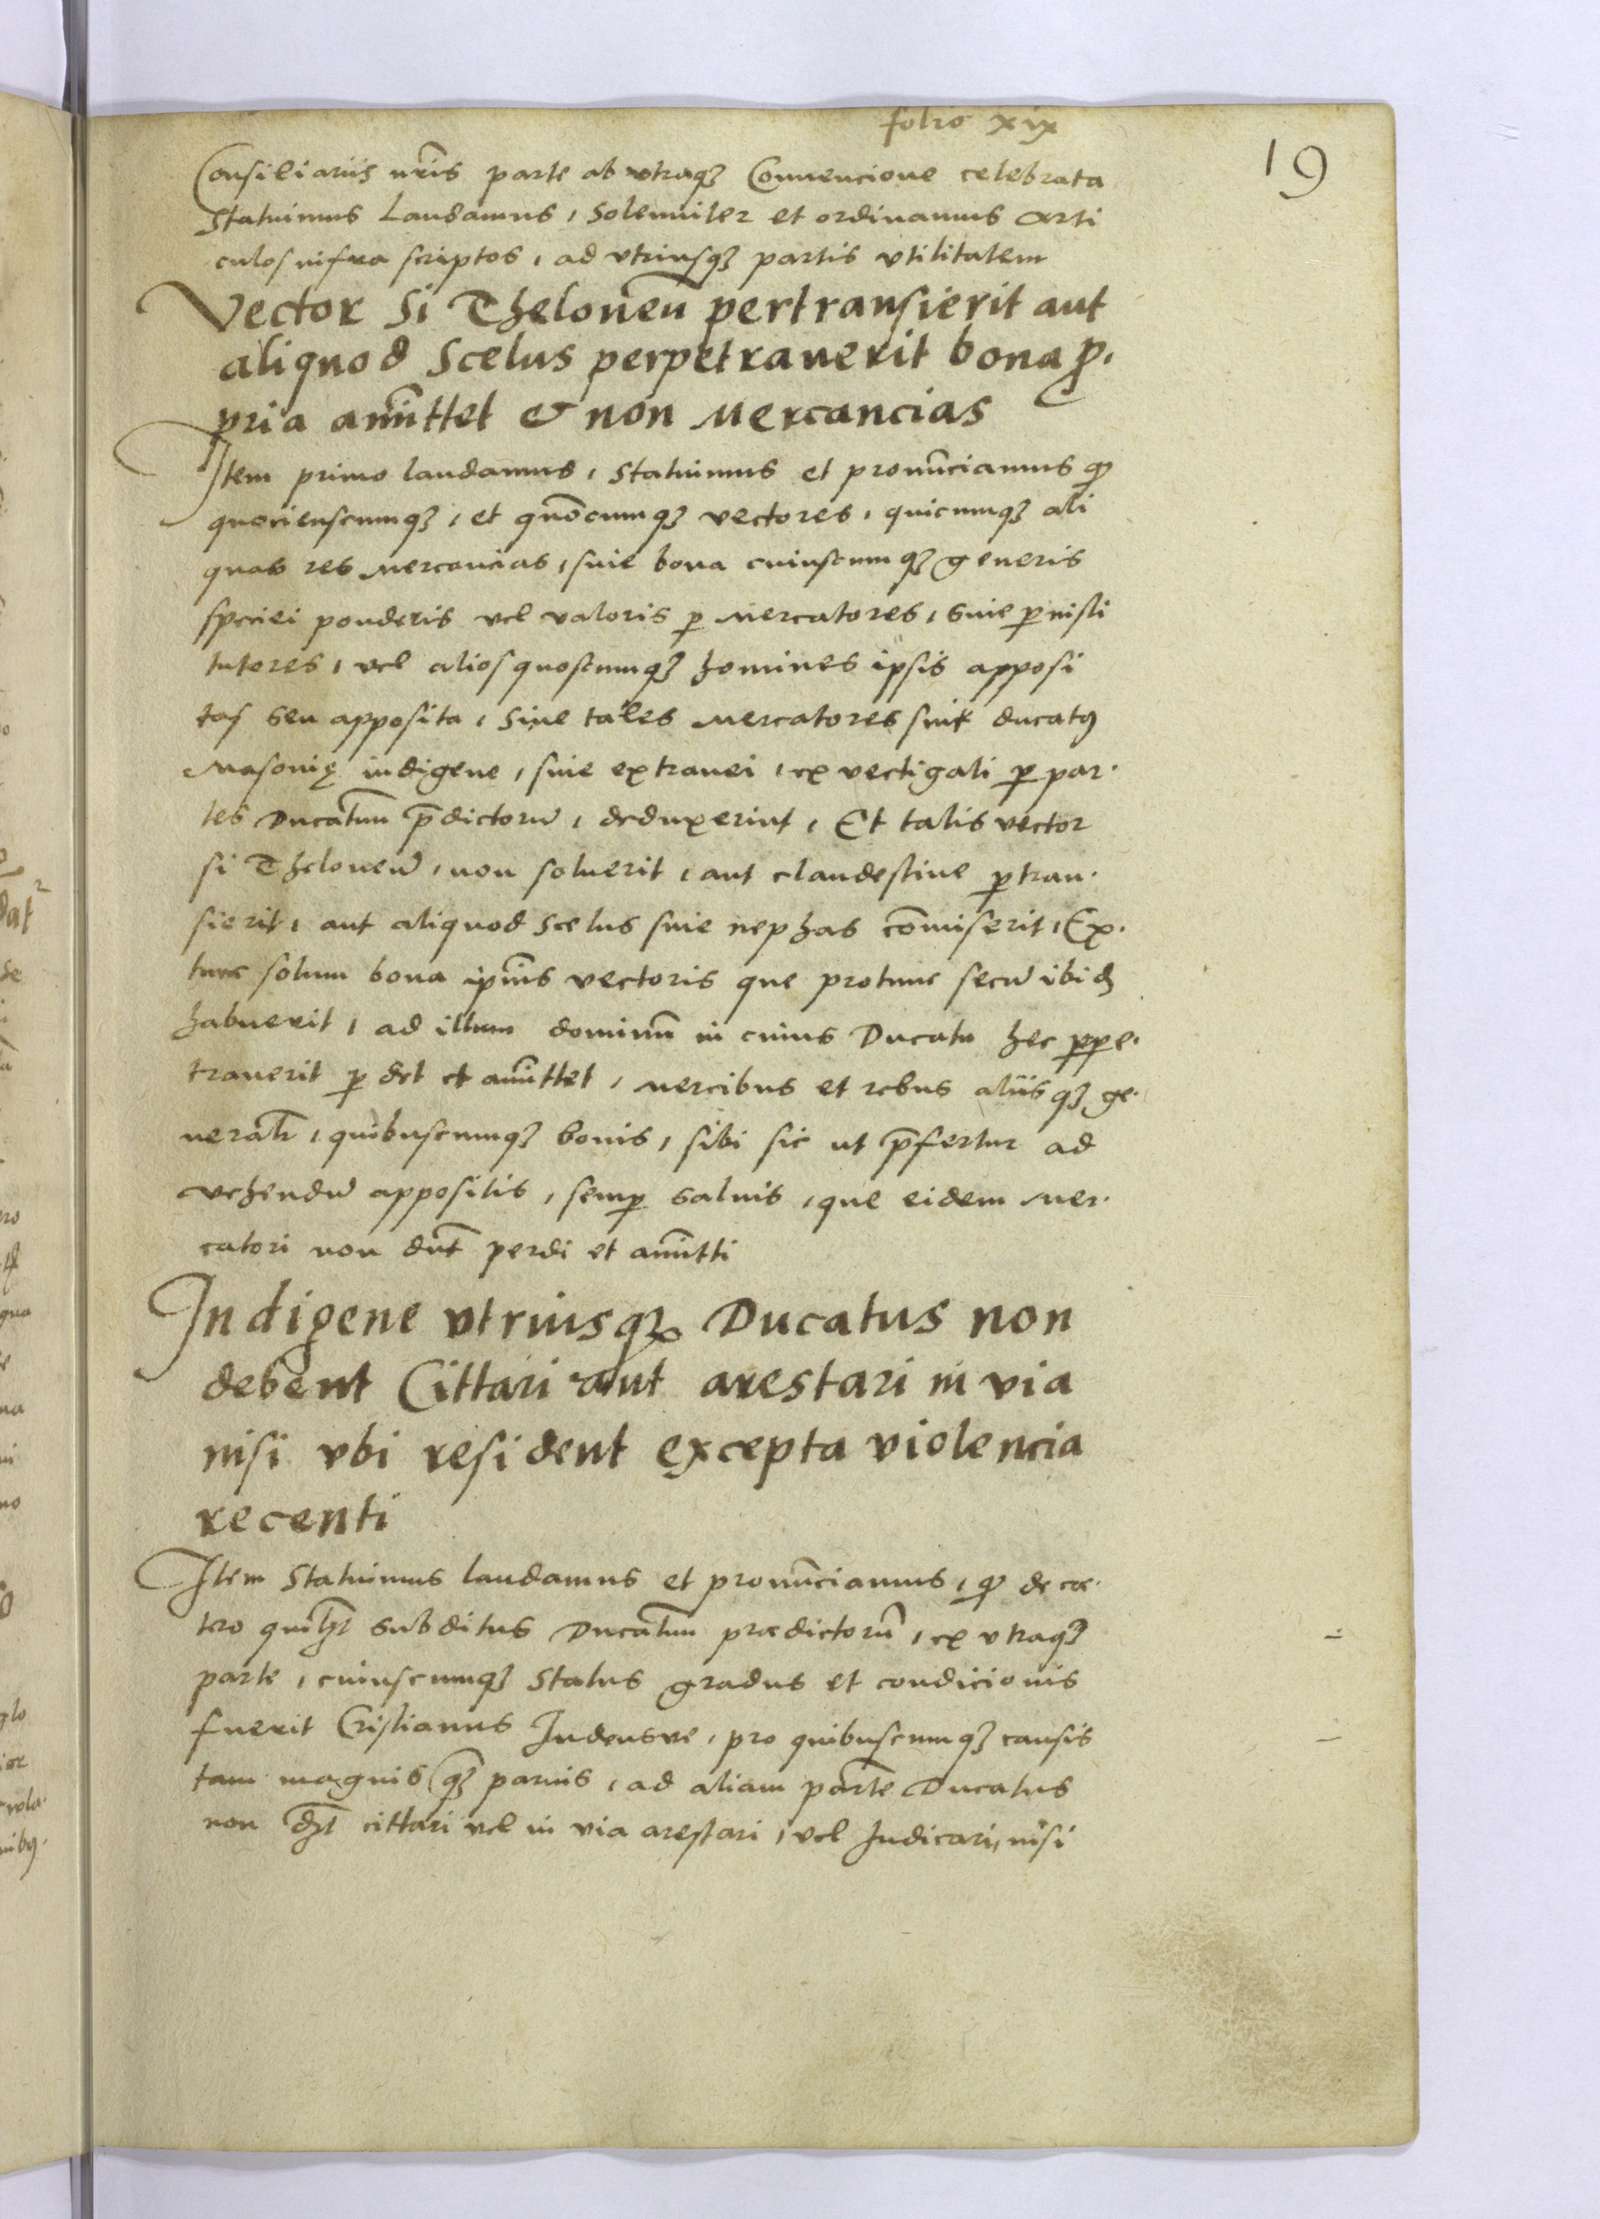 folio xix
19
Consiliariis nr̃is parte ab vtraqꝫ Conuencione celebrata
Statuimus Laudamus, Solenniter et ordinamus Arti
culos infra scriptos, ad vtriusqꝫ partis vtilitatem
Vector Si Theloneũ pertransierit aut
aliquod Scelus perpetrauerit bona ꝓ,
pria amittet & non Mercancias
Item primo laudamus, Statuimus et pronunciamus ꝙ
quocienscumqꝫ, et quõcumqꝫ vectores, quicumqꝫ ali
quas res Mercancias, siue bona cuiuscumqꝫ generis
speciei ponderis vel valoris ꝑ Mercatores, Siue ꝑ insti
tutores, vel alios quoscumqꝫ homines ipsis apposi
tas seu apposita, Siue tales Mercatores sint ducatꝰ
Masouię indigene, siue extranei, ex vectigali ꝑ par.
tes Ducatuũ p̃dictorũ, deduxerint, Et talis vector
si Theloneũ, non soluerit, aut clandestine ꝑtran.
sierit, aut aliquod Scelus siue nephas com̃iserit, Ex.
tunc solum bona ip̃ius vectoris que protunc secũ ibidẽ
habuerit, ad illum dominũ in cuius Ducatu hec ꝑpe.
trauerit ꝑdet et amittet, Mercibus et rebus aliisqꝫ ge.
neralr̃, quibuscumqꝫ bonis, sibi sic ut p̃fertur ad
vehendũ appositis, semꝑ saluis, que eidem Mer.
catori non dñt perdi et amitti
Indigene vtriusqꝫ Ducatus non
debent Cittari aut arestari in via
nisi vbi resident excepta violencia
recenti
Item Statuimus laudamus et pronunciamus, ꝙ de cæ.
tero quilꝫt Subditus Ducatuũ prædictorũ, ex vtraqꝫ
parte, cuiuscumqꝫ Status gradus et condicionis
fuerit Cristianus Iudeusve, pro quibuscumqꝫ causis
tam magnis qꝫ paruis, ad aliam partẽ Ducatus
non dꝫt cittari vel in via arestari, vel Iudicari, nisi